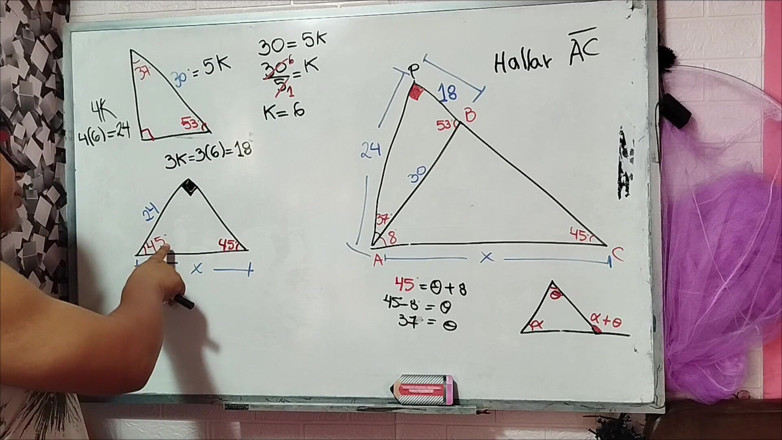 37
30° = 5K
4K
4(6)=24
53
3K=3(6)=18
30 = 5K
30 6
5 1
= K
K = 6
Hallar AC
P
18
B
53
24
30
37
8
45
A
x
C
24
45°
45
x
45 = θ + 8
45-8 = θ
37 = θ
θ
α
α+θ